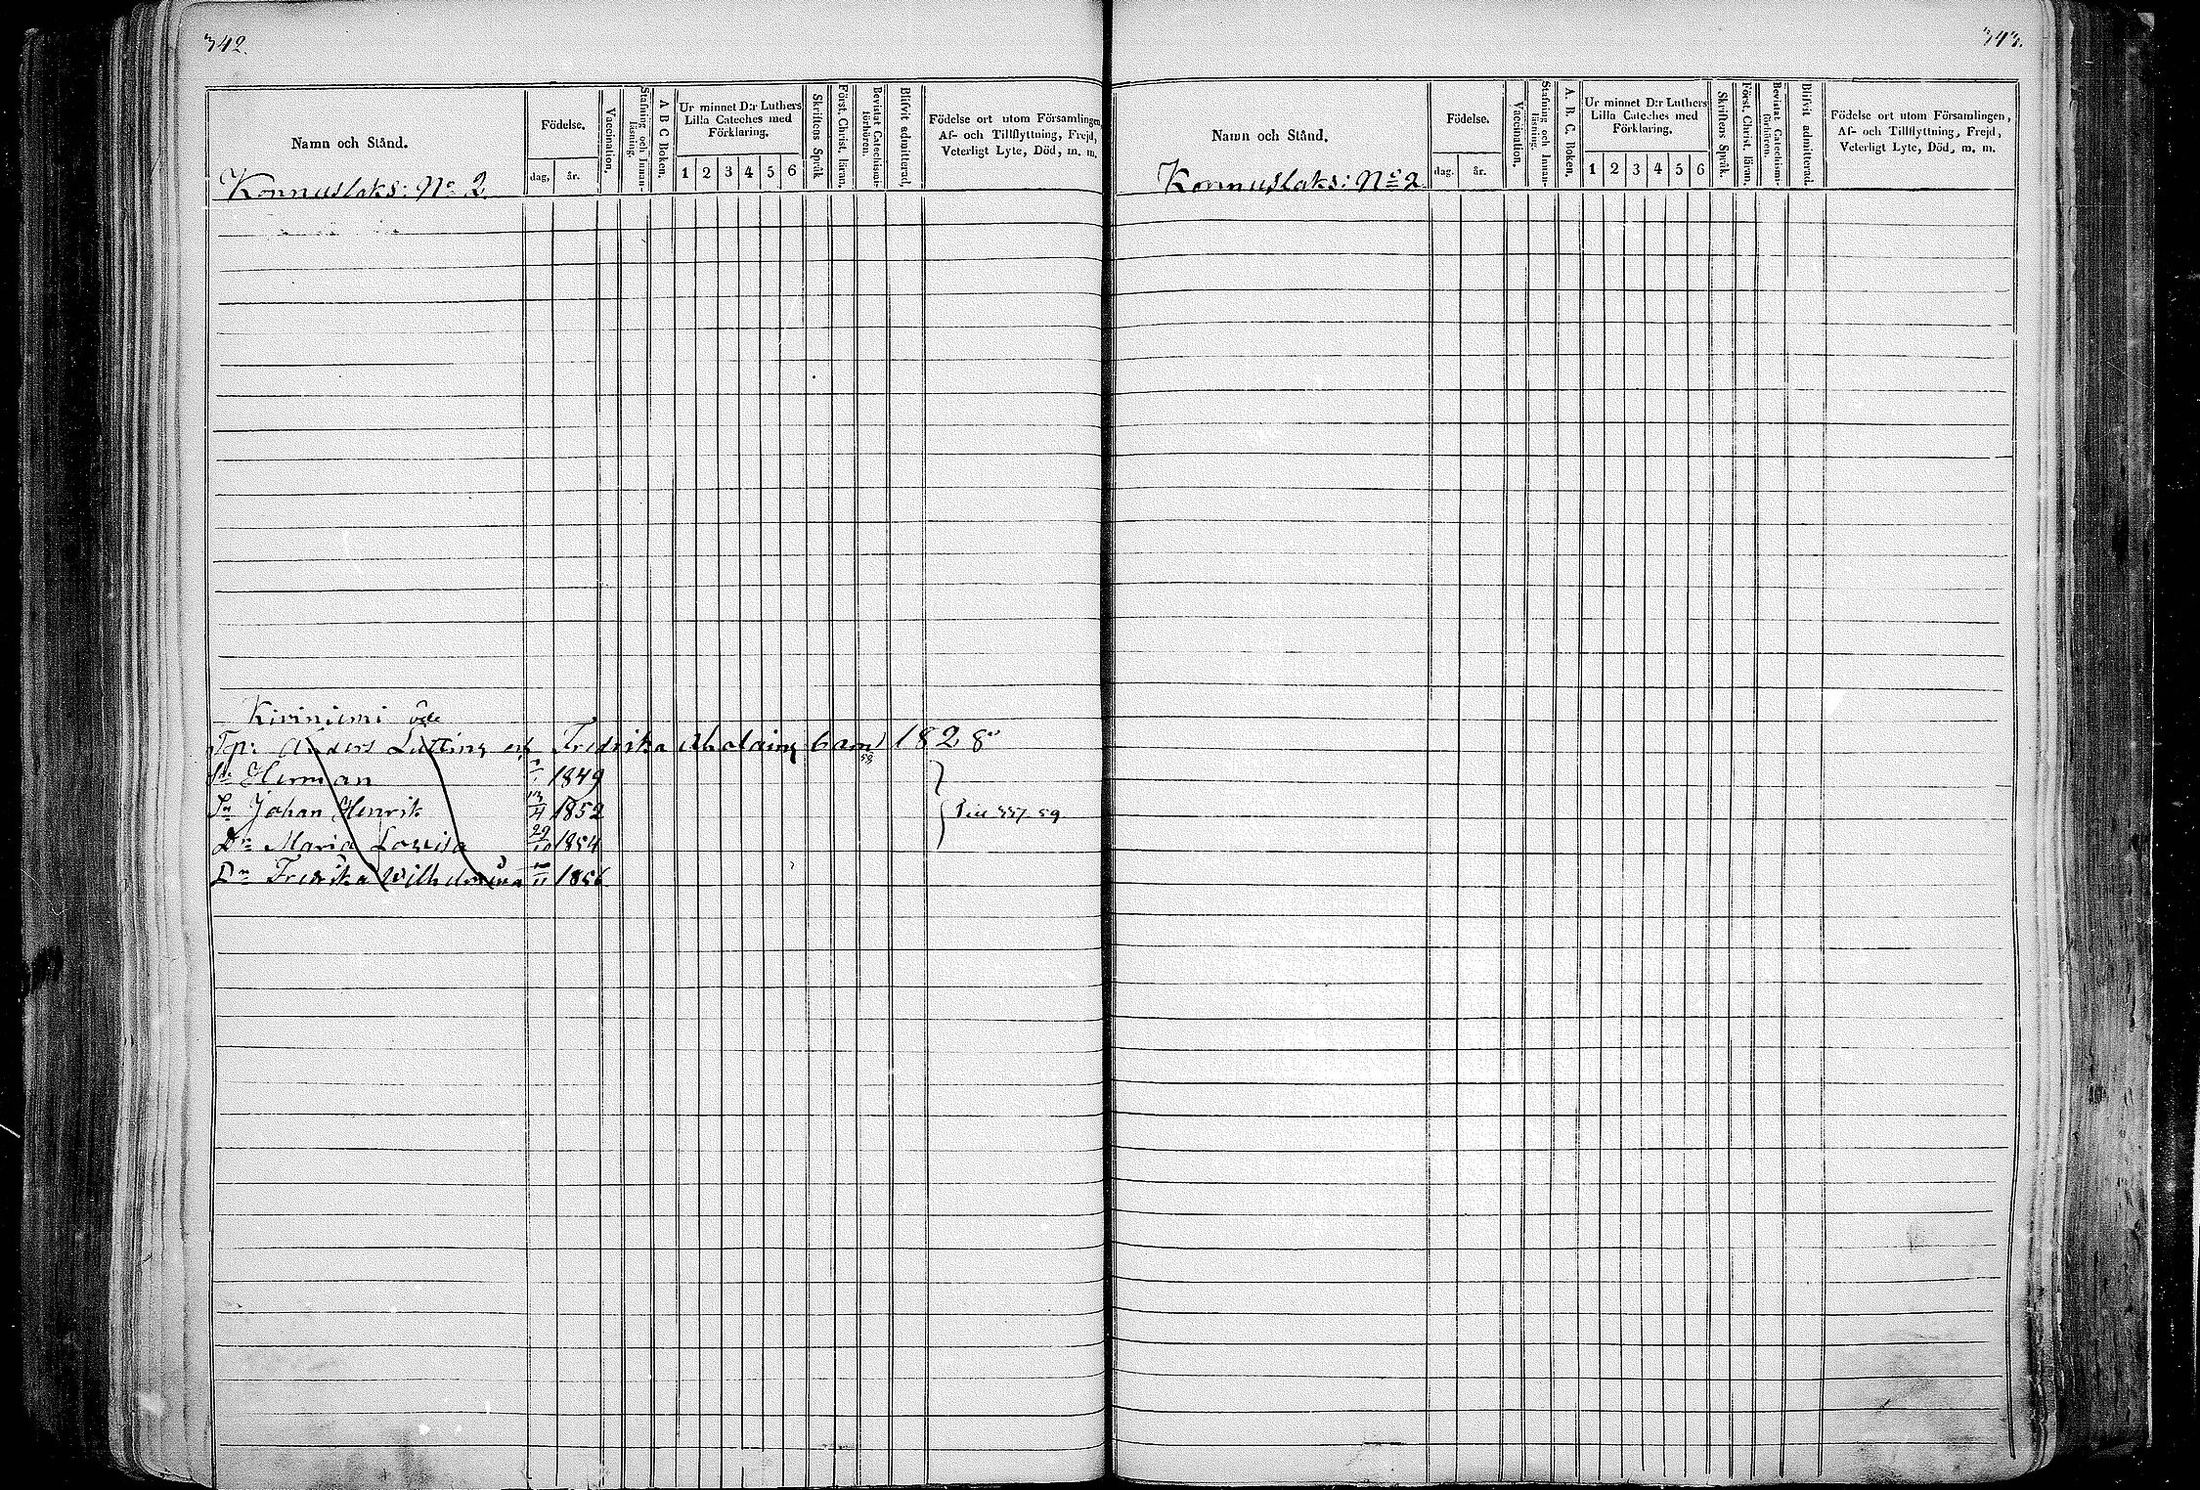 342.
Namn och Stånd.
Födelse.
dag,
år.
Vaccination,
Stafning och Innan-
läsning.
A B C Boken,
Ur minnet D:r Luthers
Lilla Cateches med
Förklaring.
1 2 3 4 5 6
Skriftens Språk
Först. Christ. läran,
Bevistat Catechismi-
förhören.
Blifvit admitterad,
Födelse ort utom Församlingen,
Af- och Tillflyttning, Frejd,
Veterligt Lyte, Död, m. m.
Konnuslaks: No 2.
Kiviniemi öde
Anders
Fredrika
1828
Sn Herman 1849
Sn Johan Henrik 13/4 1852
Dr Maria Lovisa 29/10 1854
Dr Fredrika Wilhelmina 1856
343.
Namn och Stånd.
Födelse.
dag.
år.
Vaccination.
Stafning och Innan-
läsning.
A. B. C. Boken,
Ur minnet D:r Luthers
Lilla Cateches med
Förklaring.
1 2 3 4 5 6
Skriftens Språk.
Först. Christ. läran.
Bevistat Catechismi-
förhören.
Blifvit admitterad.
Födelse ort utom Församlingen,
Af- och Tillflyttning, Frejd,
Veterligt Lyte, Död, m. m.
Konnuslaks: No 2